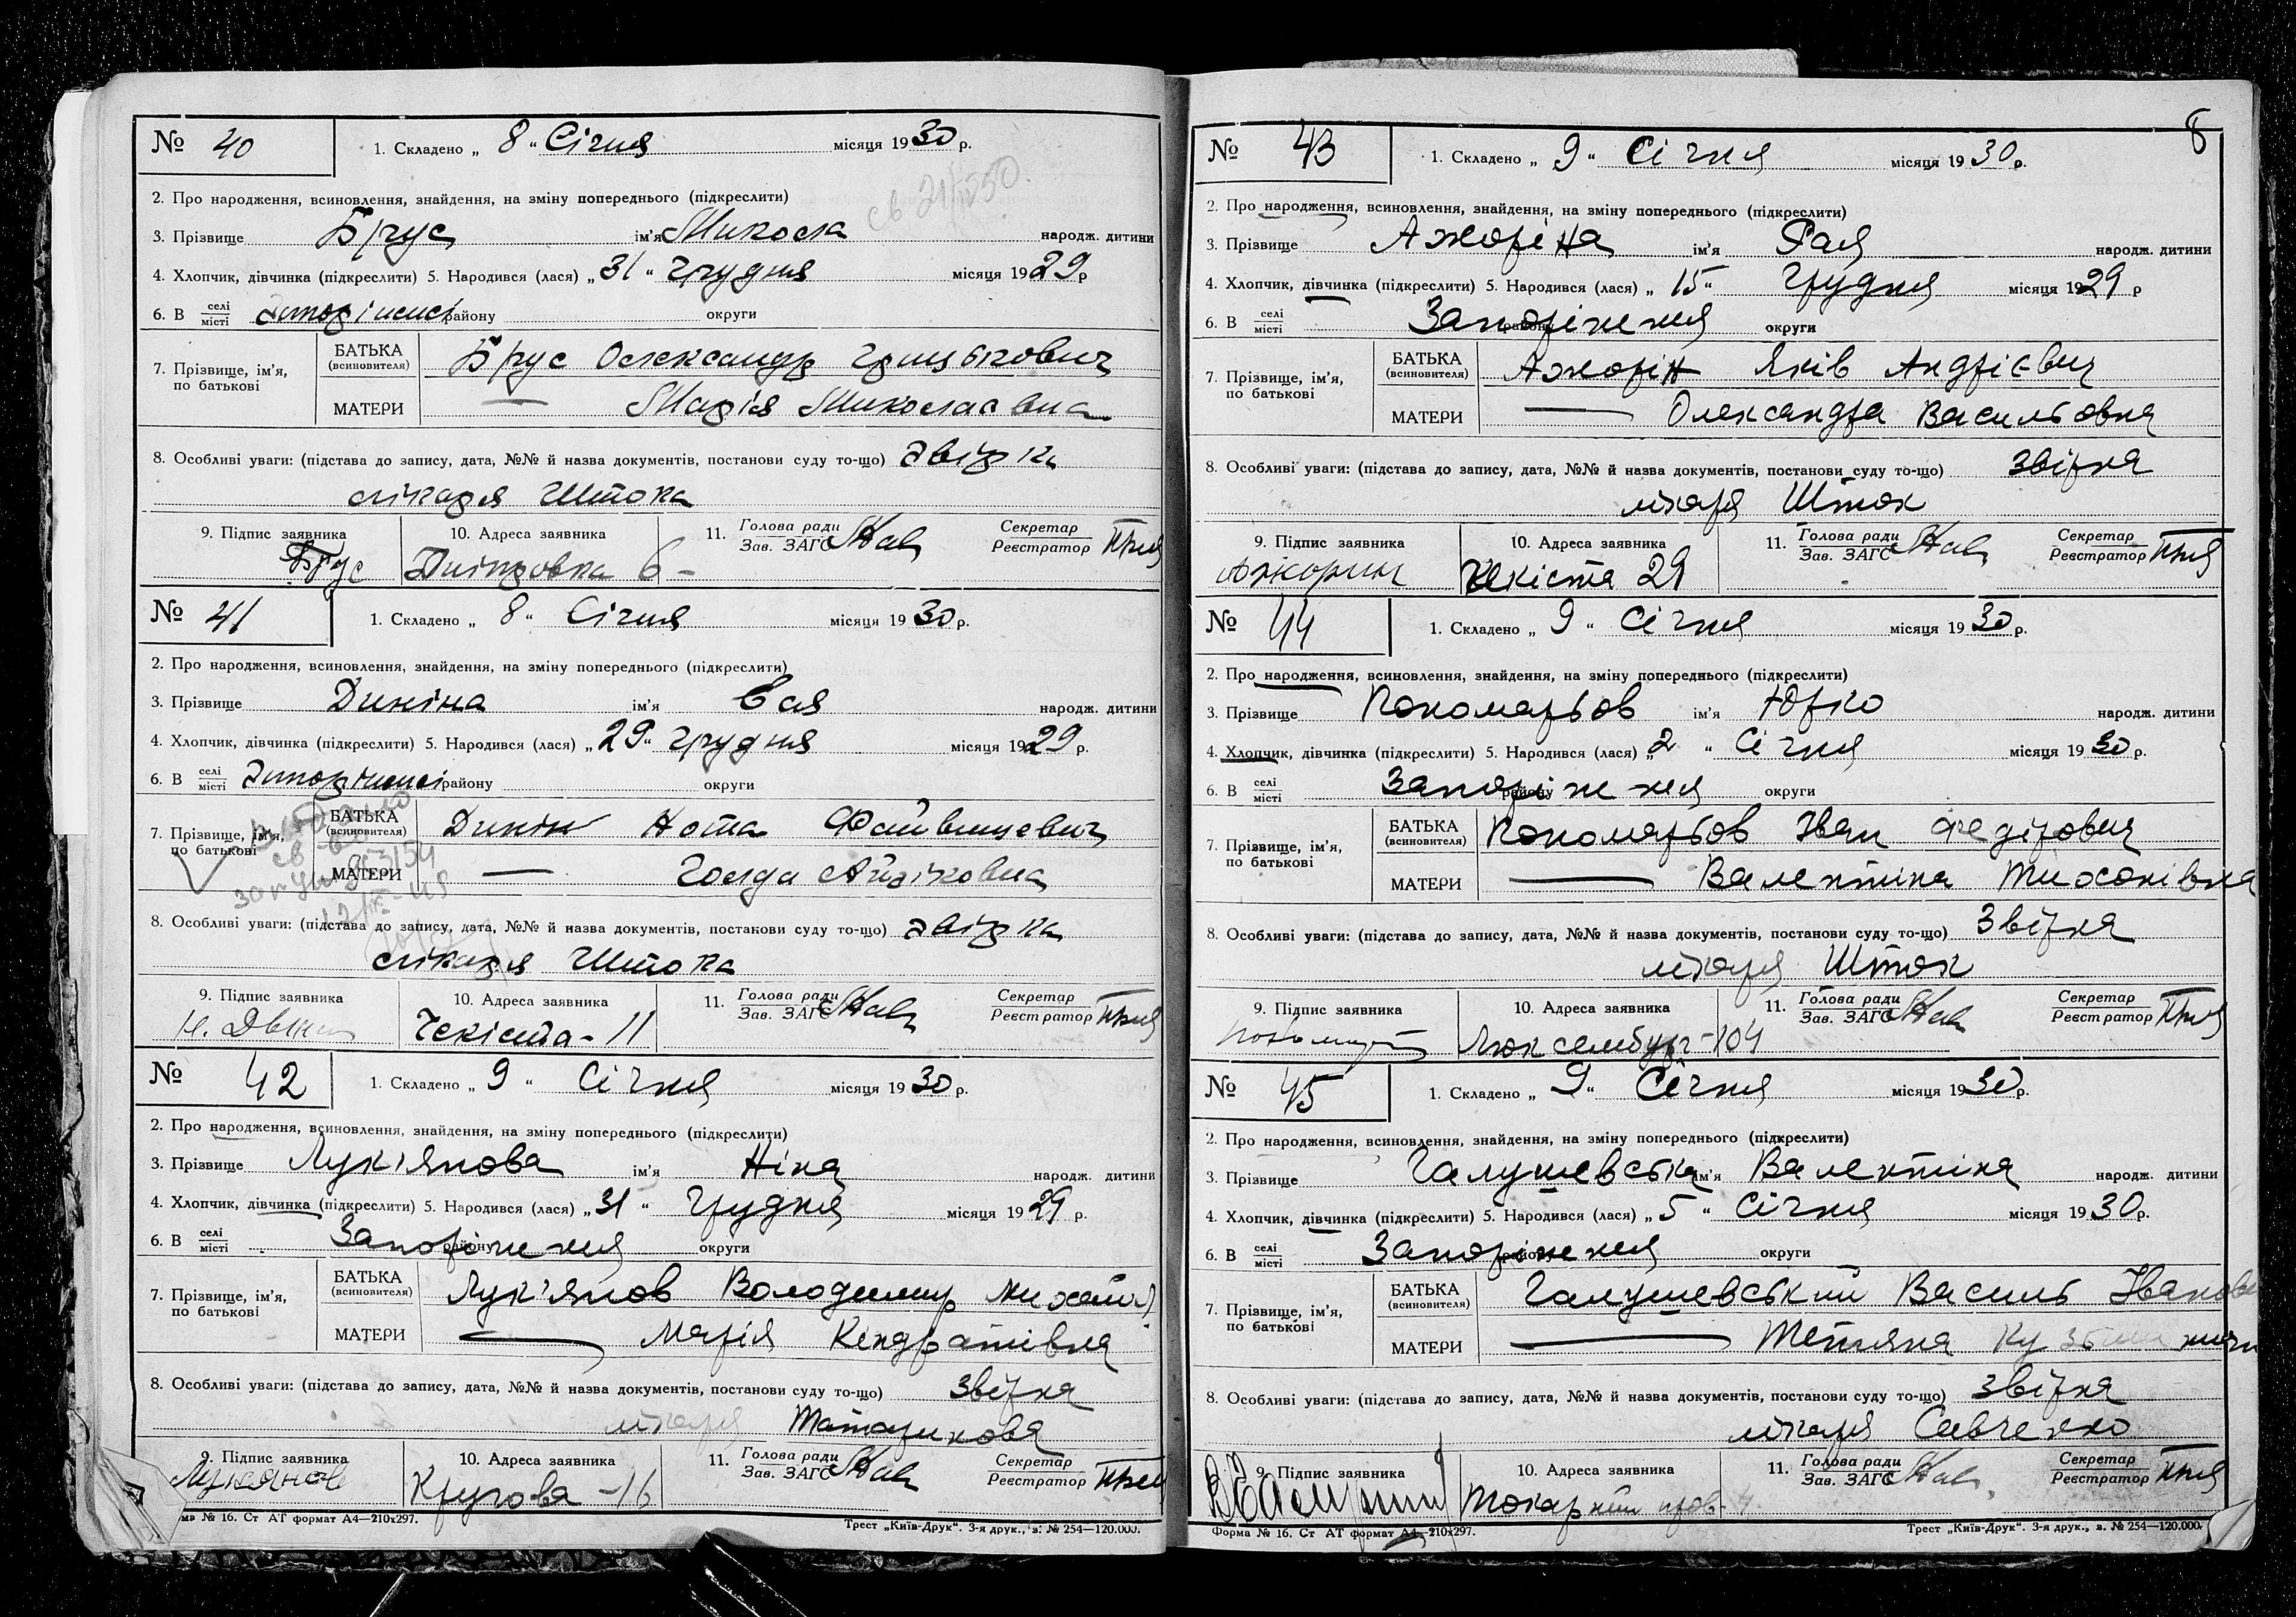 № 40 1. Складено „ 8 “ Січня місяця 1930 р.
св 21/550.
2. Про народження, всиновлення, знайдення, на зміну попереднього (підкреслити)
3. Прізвище Брус ім'я Микола народж. дитини
4. Хлопчик, дівчинка (підкреслити) 5. Народився (лася) „ 31 “ грудня місяця 1929 р
6. В селі місті району округи
7. Прізвище, ім'я, по батькові БАТЬКА (всиновителя) Брус Олександр
МАТЕРИ — Марія Миколаєвна
8. Особливі уваги: (підстава до запису, дата, №№ й назва документів, постанови суду то-що) звірка
лікаря Штока
9. Підпис заявника 10. Адреса заявника 11. Голова ради Зав. ЗАГС Секретар Реєстратор
Брус Дніпровка 6 -
№ 41 1. Складено „ 8 “ Січня місяця 1930 р.
2. Про народження, всиновлення, знайдення, на зміну попереднього (підкреслити)
3. Прізвище Дикіна ім'я народж. дитини
4. Хлопчик, дівчинка (підкреслити) 5. Народився (лася) „ 29 “ грудня місяця 1929 р.
6. В селі місті району округи
7. Прізвище, ім'я, по батькові БАТЬКА (всиновителя) Дикін Нота
МАТЕРИ — Голда
8. Особливі уваги: (підстава до запису, дата, №№ й назва документів, постанови суду то-що) звірка
лікаря Штока
9. Підпис заявника 10. Адреса заявника 11. Голова ради Зав. ЗАГС Секретар Реєстратор
Чекіста - 11
№ 42 1. Складено „ 9 “ Січня місяця 1930 р.
2. Про народження, всиновлення, знайдення, на зміну попереднього (підкреслити)
3. Прізвище Лук'янова ім'я Ніна народж. дитини
4. Хлопчик, дівчинка (підкреслити) 5. Народився (лася) „ 31 “ Грудня місяця 1929 р.
6. В селі місті Запоріжжя району округи
7. Прізвище, ім'я, по батькові БАТЬКА (всиновителя) Лук'янов Володимир Михайл
МАТЕРИ — Марія Кіндратівна
8. Особливі уваги: (підстава до запису, дата, №№ й назва документів, постанови суду то-що) Звірка
лікаря
9. Підпис заявника 10. Адреса заявника 11. Голова ради Зав. ЗАГС Секретар Реєстратор
Лукянов Кругова - 16
ма № 16. Ст АТ формат А4—210х297. Трест „Київ-Друк“. 3-я друк., з. № 254—120.000.
8
№ 43 1. Складено „ 9 “ Січня місяця 1930 р.
2. Про народження, всиновлення, знайдення, на зміну попереднього (підкреслити)
3. Прізвище Ажоріна ім'я Рая народж. дитини
4. Хлопчик, дівчинка (підкреслити) 5. Народився (лася) „ 15 “ Грудня місяця 1929 р
6. В селі місті Запоріжжя району округи
7. Прізвище, ім'я, по батькові БАТЬКА (всиновителя) Ажорін Яків Андрієвич
МАТЕРИ — Олександра Васильовна
8. Особливі уваги: (підстава до запису, дата, №№ й назва документів, постанови суду то-що) Звірка
лікаря Шток
9. Підпис заявника 10. Адреса заявника 11. Голова ради Зав. ЗАГС Секретар Реєстратор
Ажорин Чекіста 29
№ 44 1. Складено „ 9 “ Січня місяця 1930 р.
2. Про народження, всиновлення, знайдення, на зміну попереднього (підкреслити)
3. Прізвище Пономарьов ім'я Юрко народж. дитини
4. Хлопчик, дівчинка (підкреслити) 5. Народився (лася) „ 2 “ Січня місяця 1930 р.
6. В селі місті Запоріжжя району округи
7. Прізвище, ім'я, по батькові БАТЬКА (всиновителя) Пономарьов Іван Федірович
МАТЕРИ — Валентина
8. Особливі уваги: (підстава до запису, дата, №№ й назва документів, постанови суду то-що) Звірка
лікаря Шток
9. Підпис заявника 10. Адреса заявника 11. Голова ради Зав. ЗАГС Секретар Реєстратор
Люксембург - 104
№ 45 1. Складено „ 9 “ Січня місяця 1930 р.
2. Про народження, всиновлення, знайдення, на зміну попереднього (підкреслити)
3. Прізвище Галушевська ім'я Валентина народж. дитини
4. Хлопчик, дівчинка (підкреслити) 5. Народився (лася) „ 5 “ Січня місяця 1930 р.
6. В селі місті Запоріжжя району округи
7. Прізвище, ім'я, по батькові БАТЬКА (всиновителя) Галушевський Василь Іванови
МАТЕРИ — Тетяна
8. Особливі уваги: (підстава до запису, дата, №№ й назва документів, постанови суду то-що) Звірка
лікаря Савченко
9. Підпис заявника 10. Адреса заявника 11. Голова ради Зав. ЗАГС Секретар Реєстратор
Форма № 16. Ст АТ формат А4—210х297. Трест „Київ-Друк“. 3-я друк., з. № 254—120.000.